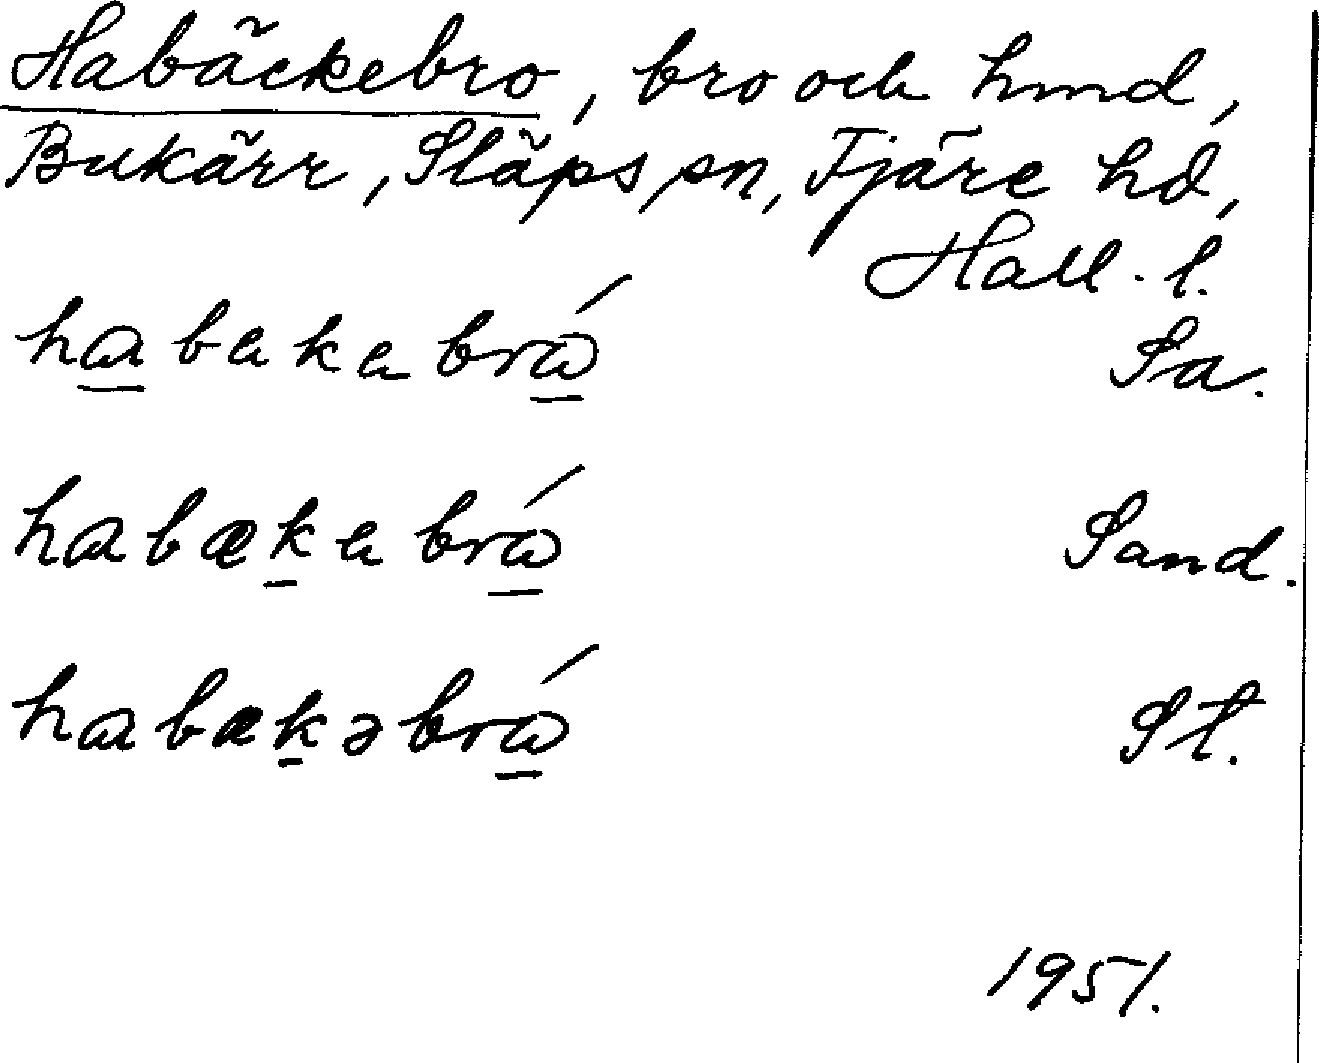 Habäckebro, bro och hmd,
Bukärr, Släps sn, Fjäre hd,
Hall. l.
habekebrå Sa.
habækebrå Sand.
habækəbrå St.
1951.